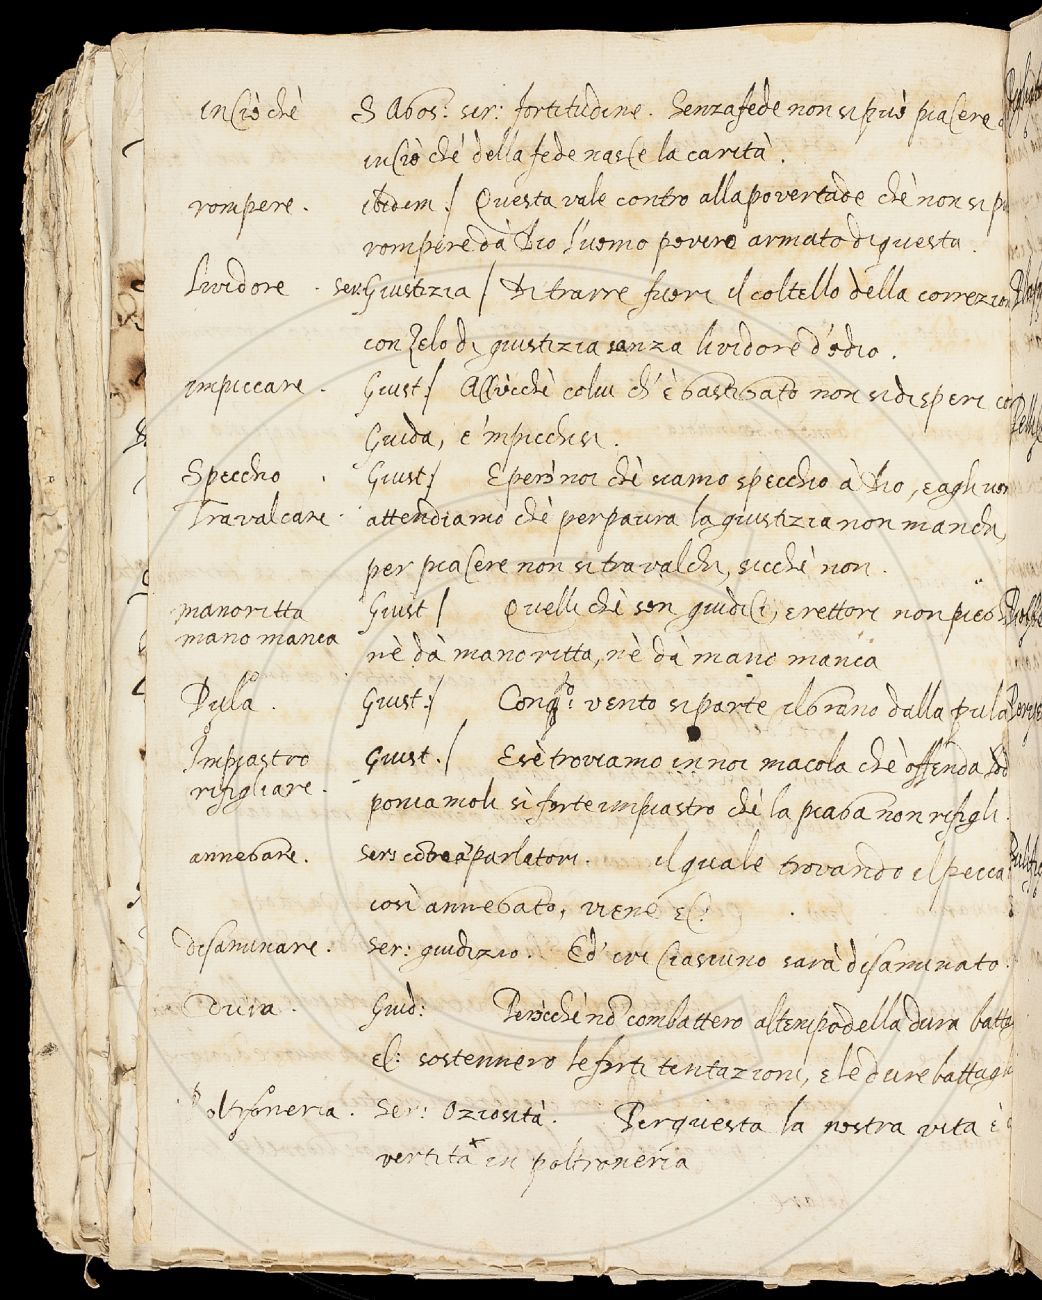 inciò chè S Agos: ser: fortitudine. Senza fede non si può piacere
inciò ché della fede nasce la carità.
rompere. ibidem / Questa vale contro alla povertade chè non si pu
rompere dà Dio l'uomo povero armato di questa.
lividore. ser: Giustizia / Di trarre fuori il coltello della correzion
con Zelo di giustizia senza lividore d'odio.
impiccare. Giust / Acciò chè colui ch' è gastigato non si disperi co
Guida, e 'mpicchisi.
Specchio. Giust / E però noi chè siamo specchio à Dio, e agli uom
Travalcare. attendiamo chè per paura la giustizia non manchi,
per piacere non si travalchi, sicché non.
manoritta Giust / Quelli chè son giudici, e rettori non pieg
mano manca nè dà mano ritta, nè dà mano manca
Pula. Giust / Con q.to vento si parte il grano dalla pula
Impiastro Giust. / E sè troviamo in noi macola chè offenda Dio
rifigliare. poniamoli sì forte impiastro chè la piaga non rifigli.
annegare. Il quale trovando il pecca
così annegato, viene ec:
disaminare. Ser: giudizio. Ed ivi ciascuno sarà disaminato.
Dura. Giud: Perocchè nō combattero al tempo della dura batta
ec: sostennero le forti tentazioni, e le dure battagli
Poltroneria. Ser: Oziosità. Per questa la nostra vita è
vertita in poltroneria